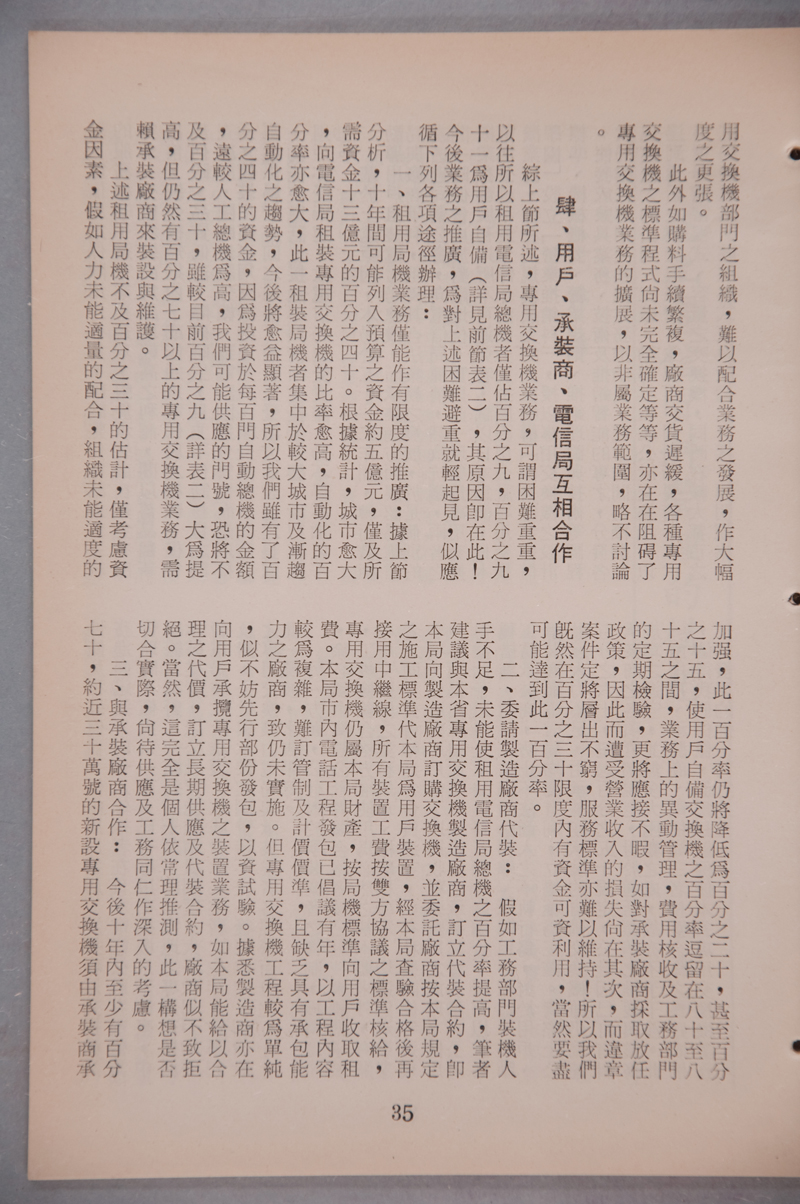 用交換機部門之組織，難以配合業務之發展，作大幅
度之更張。
此外如購料手續繁複，廠商交貨遲緩，各種專用
交換機之標準程式尙未完全確定等等，亦在在阻碍了
專用交換機業務的擴展，以非屬業務範圍，略不討論
。
肆、用戶、承裝商、電信局互相合作
綜上節所述，專用交換機業務，可謂困難重重，
以往所以租用電信局總機者僅佔百分之九，百分之九
十一爲用戶自備（詳見前節表二），其原因卽在此！
今後業務之推廣，爲對上述困難避重就輕起見，似應
循下列各項途徑辦理：
一、租用局機業務僅能作有限度的推廣：據上節
分析，十年間可能列入預算之資金約五億元，僅及所
需資金十三億元的百分之四十。根據統計，城市愈大
，向電信局租裝專用交換機的比率愈高，自動化的百
分率亦愈大，此一租裝局機者集中於較大城市及漸趨
自動化之趨勢，今後將愈益顯著，所以我們雖有了百
分之四十的資金，因爲投資於每百門自動總機的金額
，遠較人工總機爲高，我們可能供應的門號，恐將不
及百分之三十，雖較目前百分之九（詳表二）大爲提
高，但仍然有百分之七十以上的專用交換機業務，需
賴承裝廠商來裝設與維護。
上述租用局機不及百分之三十的估計，僅考慮資
金因素，假如人力未能適量的配合，組織未能適度的
加强，此一百分率仍將降低爲百分之二十，甚至百分
之十五，使用戶自備交換機之百分率逗留在八十至八
十五之間，業務上的異動管理，費用核收及工務部門
的定期檢驗，更將應接不暇，如對承裝廠商採取放任
政策，因此而遭受營業收入的損失尙在其次，而違章
案件定將層出不窮，服務標準亦難以維持！所以我們
旣然在百分之三十限度內有資金可資利用，當然要盡
可能達到此一百分率。
二、委請製造廠商代裝：　假如工務部門裝機人
手不足，未能使租用電信局總機之百分率提高，筆者
建議與本省專用交換機製造廠商，訂立代裝合約，卽
本局向製造廠商訂購交換機，並委託廠商按本局規定
之施工標準代本局爲用戶裝置，經本局查驗合格後再
接用中繼線，所有裝置工費按雙方協議之標準核給，
專用交換機仍屬本局財產，按局機標準向用戶收取租
費。本局市內電話工程發包已倡議有年，以工程內容
較爲複雜，難訂管制及計價價準，且缺乏具有承包能
力之廠商，致仍未實施。但專用交換機工程較爲單純
，似不妨先行部份發包，以資試驗。據悉製造商亦在
向用戶承攬專用交換機之裝置業務，如本局能給以合
理之代價，訂立長期供應及代裝合約，廠商似不致拒
絕。當然，這完全是個人依常理推測，此一構想是否
切合實際，尙待供應及工務同仁作深入的考慮。
三、與承裝廠商合作：　今後十年內至少有百分
七十，約近三十萬號的新設專用交換機須由承裝商承
35